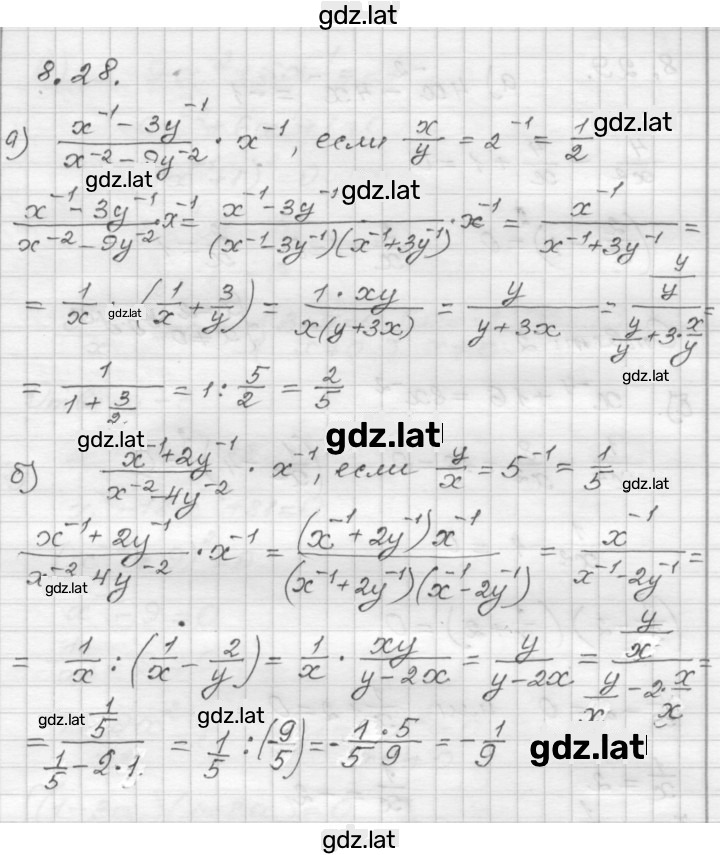 gdz.lat
8.28.
а) (x⁻¹ - 3y⁻¹)/(x⁻² - 9y⁻²) · x⁻¹, если x/y = 2⁻¹ = 1/2 gdz.lat
gdz.lat gdz.lat
(x⁻¹ - 3y⁻¹)/(x⁻² - 9y⁻²) · x⁻¹ = (x⁻¹ - 3y⁻¹)/((x⁻¹ - 3y⁻¹)(x⁻¹ + 3y⁻¹)) · x⁻¹ = x⁻¹/(x⁻¹ + 3y⁻¹) =
= 1/x : (1/x + 3/y) = (1 · xy)/(x(y + 3x)) = y/(y + 3x) = (y/y)/(y/y + 3 · x/y) =
gdz.lat
gdz.lat
= 1/(1 + 3/2) = 1 : 5/2 = 2/5
gdz.lat gdz.lat
б) (x⁻¹ + 2y⁻¹)/(x⁻² - 4y⁻²) · x⁻¹, если y/x = 5⁻¹ = 1/5 gdz.lat
(x⁻¹ + 2y⁻¹)/(x⁻² - 4y⁻²) · x⁻¹ = ((x⁻¹ + 2y⁻¹)x⁻¹)/((x⁻¹ + 2y⁻¹)(x⁻¹ - 2y⁻¹)) = x⁻¹/(x⁻¹ - 2y⁻¹) =
gdz.lat
= 1/x : (1/x - 2/y) = 1/x · xy/(y - 2x) = y/(y - 2x) = (y/x)/(y/x - 2 · x/x) =
gdz.lat gdz.lat
= (1/5)/(1/5 - 2 · 1) = 1/5 : (-9/5) = -(1 · 5)/(5 · 9) = -1/9 gdz.lat
gdz.lat